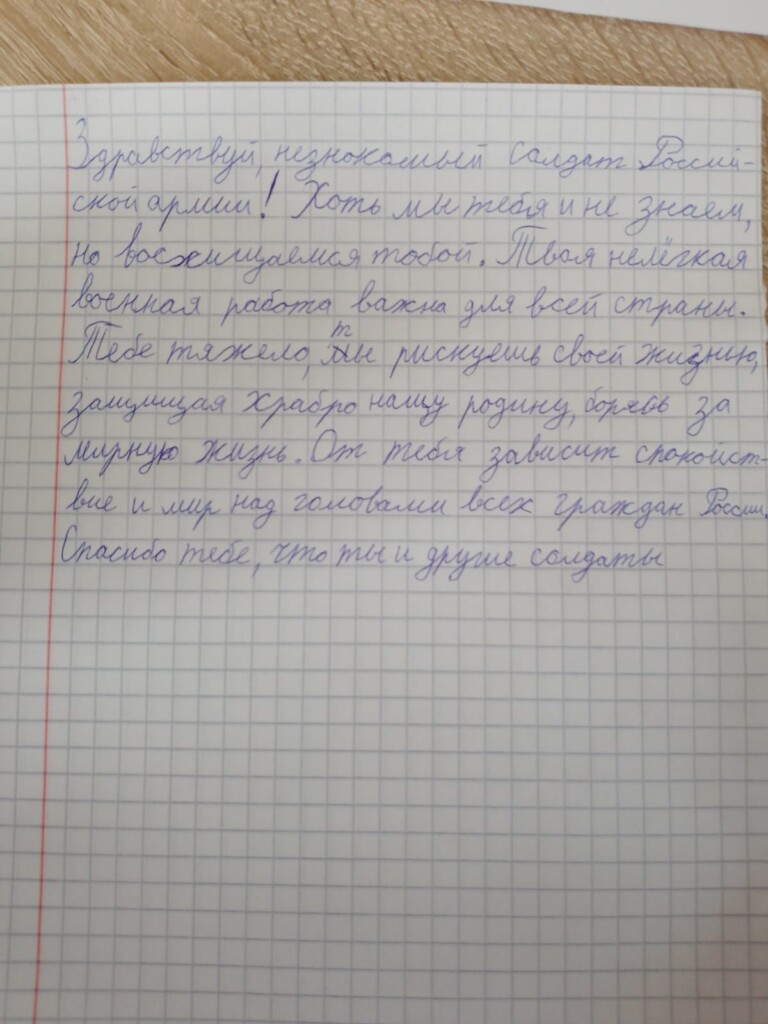 Здравствуй, незнокомый солдат Россий-
ской армии! Хоть мы тебя и не знаем,
но восхищаемся тобой. Твоя нелёгкая
военная работа важна для всей страны.
Тебе тяжело, ты рискуешь своей жизнью,
защищая храбро нашу родину, борясь за
мирную жизнь. От тебя зависит спокойст-
вие и мир над головами всех граждан России.
Спасибо тебе, что ты и другие солдаты